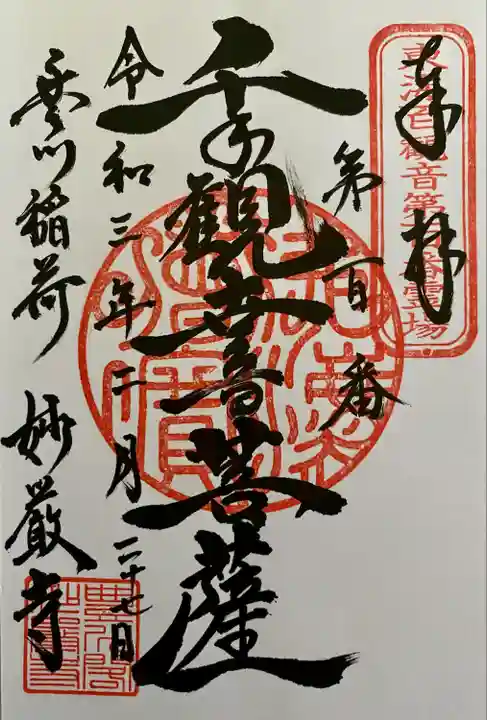 奉拝
東海百觀音第百番霊場
第百番
千手觀世音菩薩
令和三年二月二十七日
豊川稲荷 妙厳寺